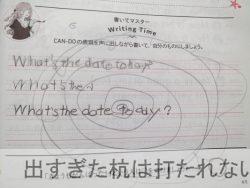 書いてマスター
Writing Time
CAN-DOの表現を声に出しながら書いて、自分のものにしましょう。
What's the date today?
What's the d
What's the date to day?
出すぎた杭は打たれない